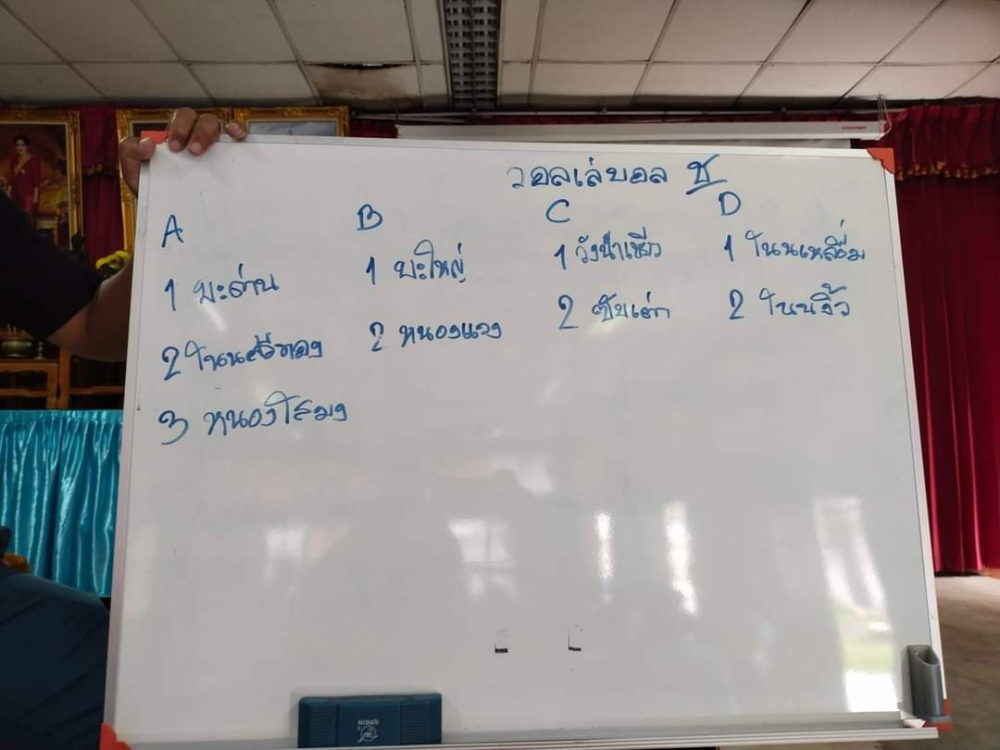 วอลเล่บอล ช
A
1 มะด่าน
2 โนนสีทอง
3 หนองโสมง
B
1 บะใหญ่
2 หนองแวง
C
1 วังน้ำเขียว
2 ซับเต่า
D
1 โนนเหลื่อม
2 โนนงิ้ว